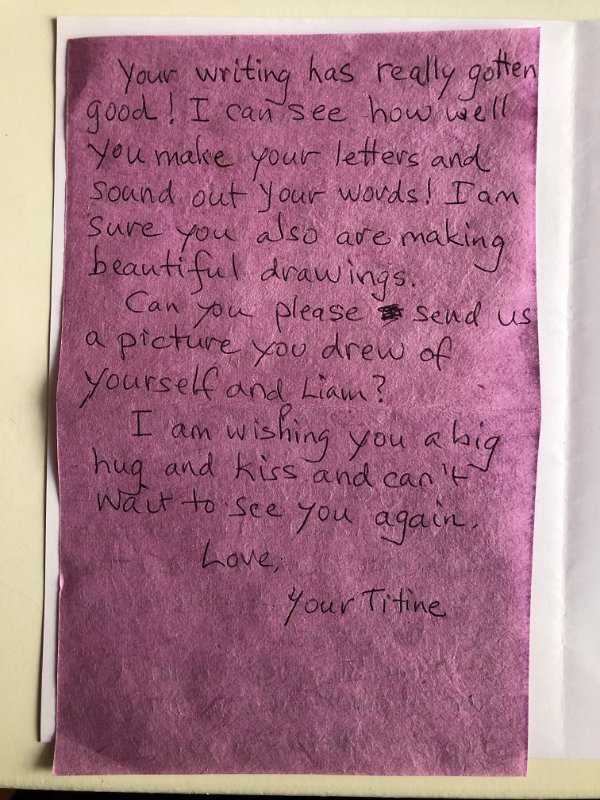 Your writing has really gotten
good! I can see how well
you make your letters and
sound out your words! I am
sure you also are making
beautiful drawings.
Can you please send us
a picture you drew of
yourself and Liam?
I am wishing you a big
hug and kiss and can't
wait to see you again.
Love,
Your Titine